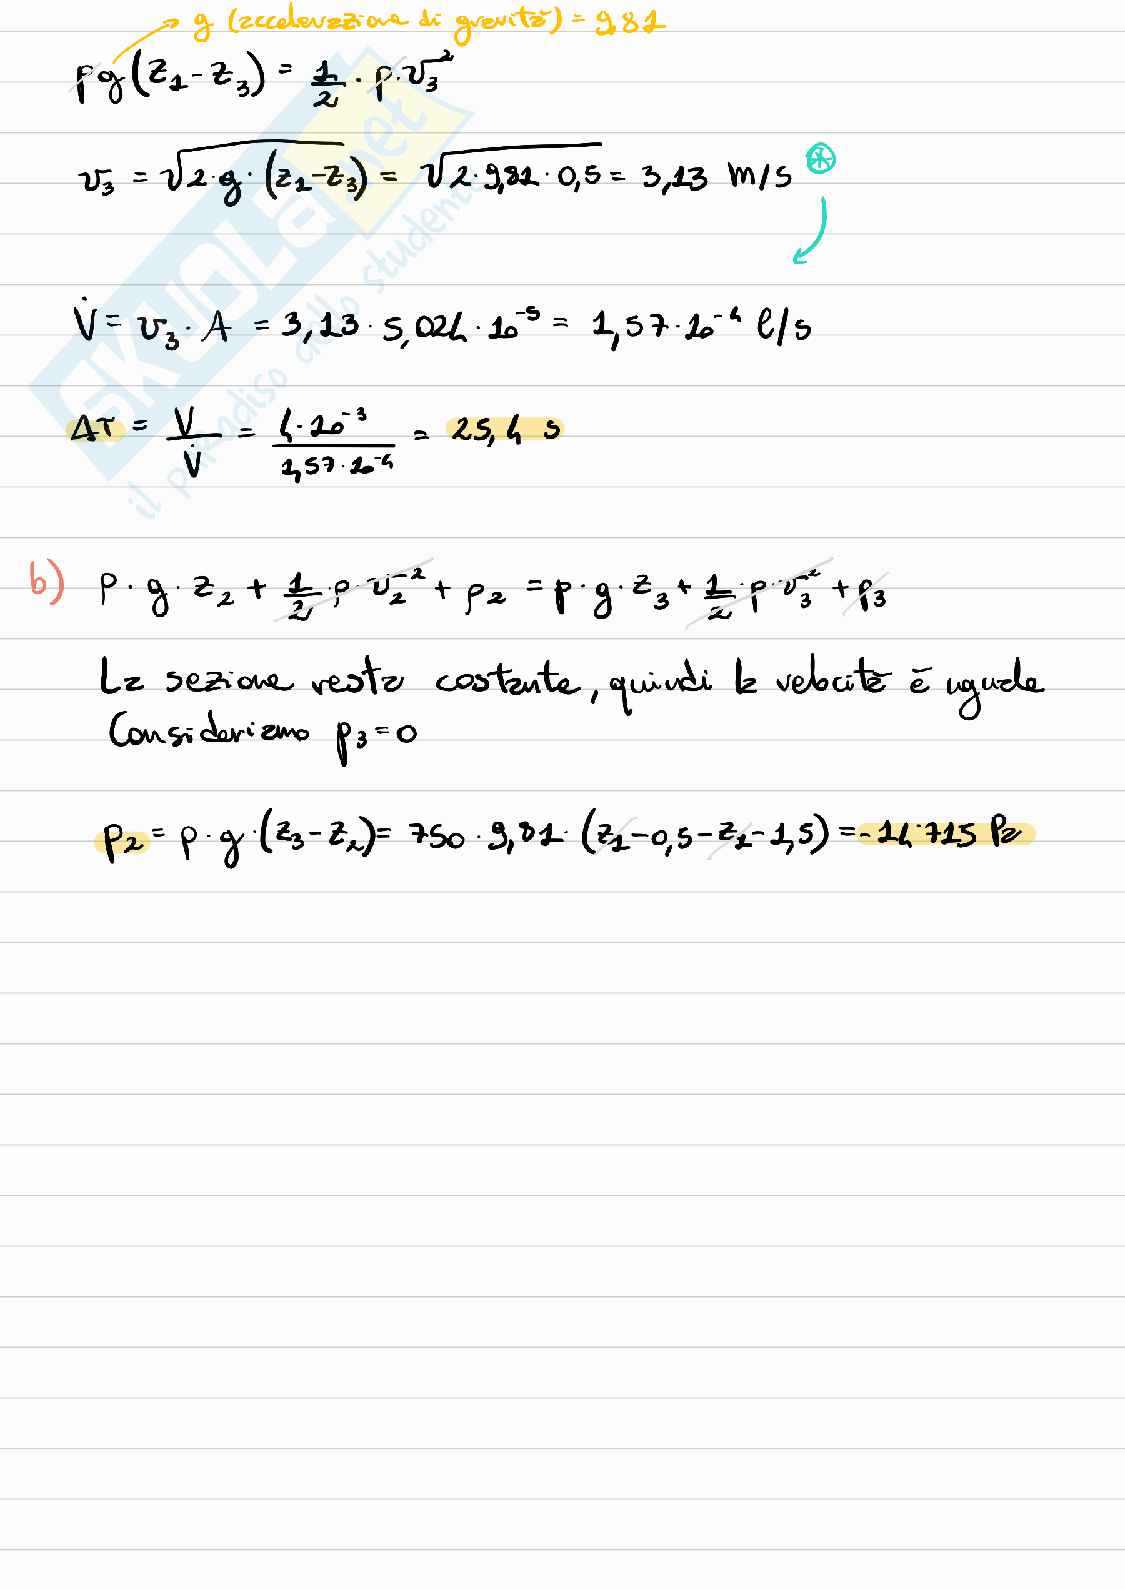 g (accelerazione di gravità) = 9,81
ρg(z₁-z₃) = 1/2 · ρ·v₃²
v₃ = √2·g·(z₁-z₃) = √2·9,81·0,5 = 3,13 m/s ⊛
V̇ = v₃ · A = 3,13 · 5,024 · 10⁻⁵ = 1,57·10⁻⁴ l/s
ΔT = V/V̇ = 4·10⁻³/1,57·10⁻⁴ = 25,4 s
b) ρ · g · z₂ + 1/2 · ρ · v₂² + p₂ = ρ · g · z₃ + 1/2 · ρ · v₃² + p₃
La sezione resta costante, quindi la velocità è uguale
Consideriamo p₃ = 0
p₂ = ρ · g · (z₃ - z₂) = 750 · 9,81 · (z₁ - 0,5 - z₁ - 1,5) = - 14'715 Pa
SKUOLA.net
il paradiso dello studente